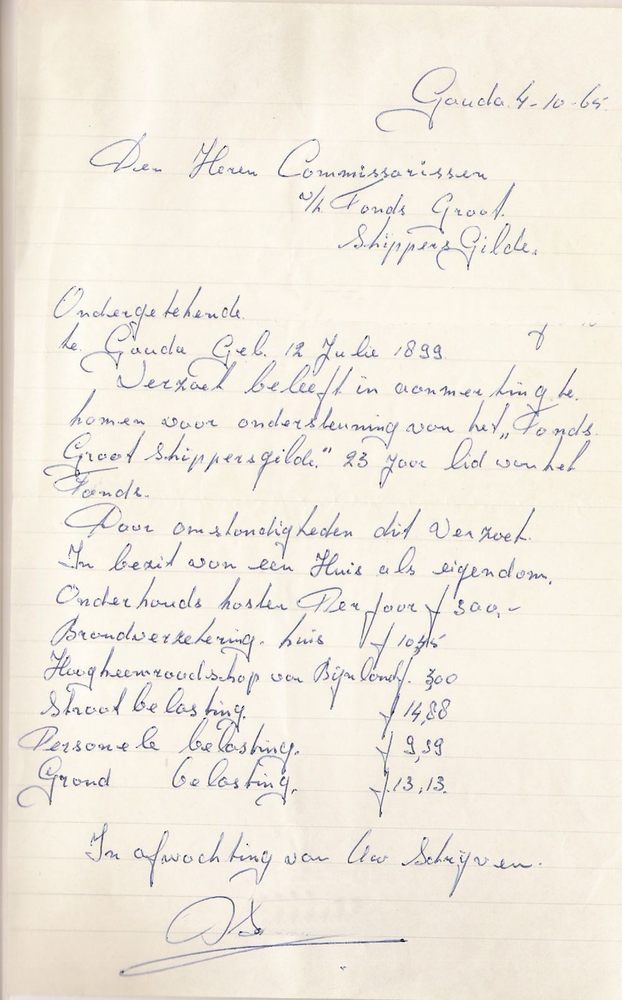 Gouda 4-10-65
Den Heren Commissarissen
v/h Fonds Groot
Shippers Gilde.
Ondergetekende.
te. Gouda Geb. 12 Julie 1899
Verzoekt beleeft in aanmerking te.
komen voor ondersteuning van het „Fonds.
Groot Shippersgilde." 23 Jaar lid van het
Fonds.
Door omstandigheden dit Verzoek.
In bezit van een Huis als eigendom.
Onderhouds kosten Per Jaar f 300,-
Brandverzekering. huis f 10,45
Hoogheemraadschap van Rijnland f. 3,00
Straat belasting. f 14,88
Personele belasting. f 9,39
Grond belasting. f. 13,13.
In afwachting van Uw Schrijven.